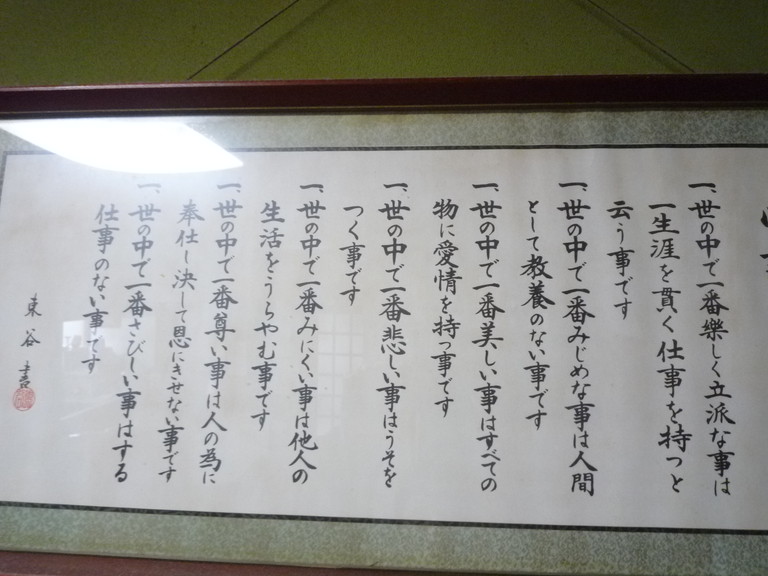 一、世の中で一番樂しく立派な事は
一生涯を貫く仕事を持つと
云う事です
一、世の中で一番みじめな事は人間
として教養のない事です
一、世の中で一番美しい事はすべての
物に愛情を持つ事です
一、世の中で一番悲しい事はうそを
つく事です
一、世の中で一番みにくい事は他人の
生活をうらやむ事です
一、世の中で一番尊い事は人の為に
奉仕し決して恩にきせない事です
一、世の中で一番さびしい事はする
仕事のない事です
東谷書